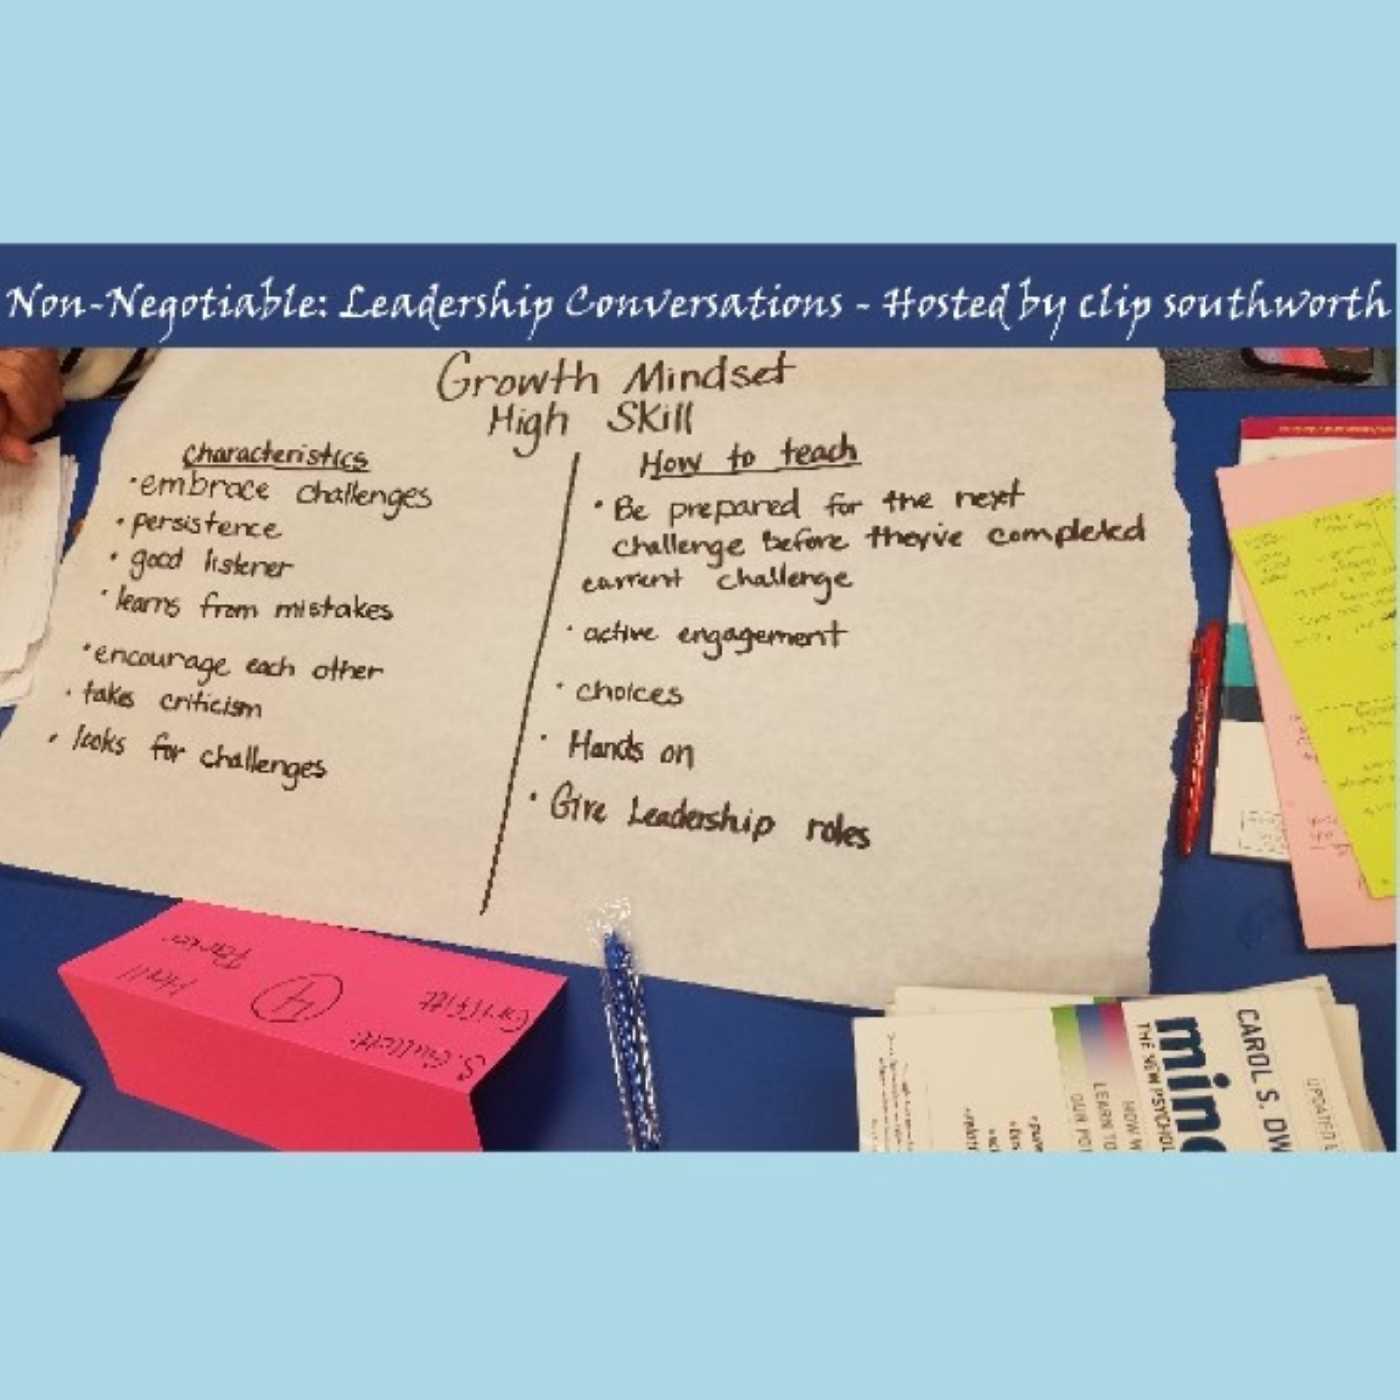 Non-Negotiable: Leadership Conversations - Hosted by clip southworth
Growth Mindset
High Skill
characteristics
• embrace challenges
• persistence
• good listener
• learns from mistakes
• encourage each other
• takes criticism
• looks for challenges
How to teach
• Be prepared for the next
challenge before they've completed
current challenge
• active engagement
• choices
• Hands on
• Give Leadership roles
Parker
Hall
4
Griffitt
CAROL S. DW
min
THE NEW PSYCHOL
HOW W
LEARN TO
UPDATED E